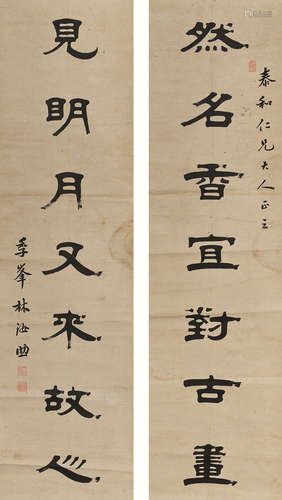 泰和仁兄大人正之
然名香宜對古畫
見明月又來故心
季峯林汝